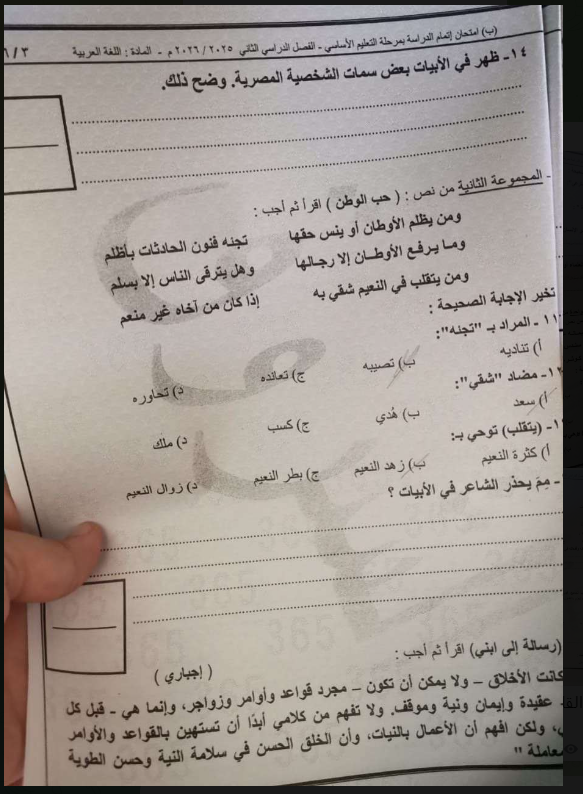 (ب) امتحان إتمام الدراسة بمرحلة التعليم الأساسي - الفصل الدراسي الثاني ٢٠٢٥/ ٢٠٢٦ م - المادة : اللغة العربية ٣/
١٤- ظهر في الأبيات بعض سمات الشخصية المصرية. وضح ذلك.
- المجموعة الثانية من نص : ( حب الوطن ) اقرأ ثم أجب :
ومن يظلم الأوطان أو ينس حقها تجنه فنون الحادثات بأظلم
وما يرفع الأوطان إلا رجالها وهل يترقى الناس إلا بسلم
ومن يتقلب في النعيم شقي به إذا كان من آخاه غير منعم
تخير الإجابة الصحيحة :
١١ - المراد بـ "تجنه":
أ) تناديه ب) تصيبه ج) تعانده د) تحاوره
١٢- مضاد "شقي":
أ) سعد ب) هُدي ج) كسب د) ملك
١- (يتقلب) توحي بـ:
أ) كثرة النعيم ب) زهد النعيم ج) بطر النعيم د) زوال النعيم
- مِمَ يحذر الشاعر في الأبيات ؟
365 365
65 365 65
(رسالة إلى ابني) اقرأ ثم أجب : ( إجباري )
كانت الأخلاق – ولا يمكن أن تكون – مجرد قواعد وأوامر وزواجر، وإنما هي - قبل كل
عقيدة وإيمان ونية وموقف. ولا تفهم من كلامي أبدًا أن تستهين بالقواعد والأوامر
، ولكن افهم أن الأعمال بالنيات، وأن الخلق الحسن في سلامة النية وحسن الطوية
معاملة "